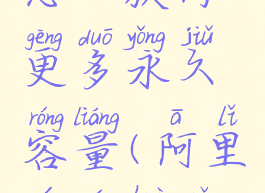 gēng duō yǒng jiǔ
更多永久
róng liáng ā lǐ
容量(阿里